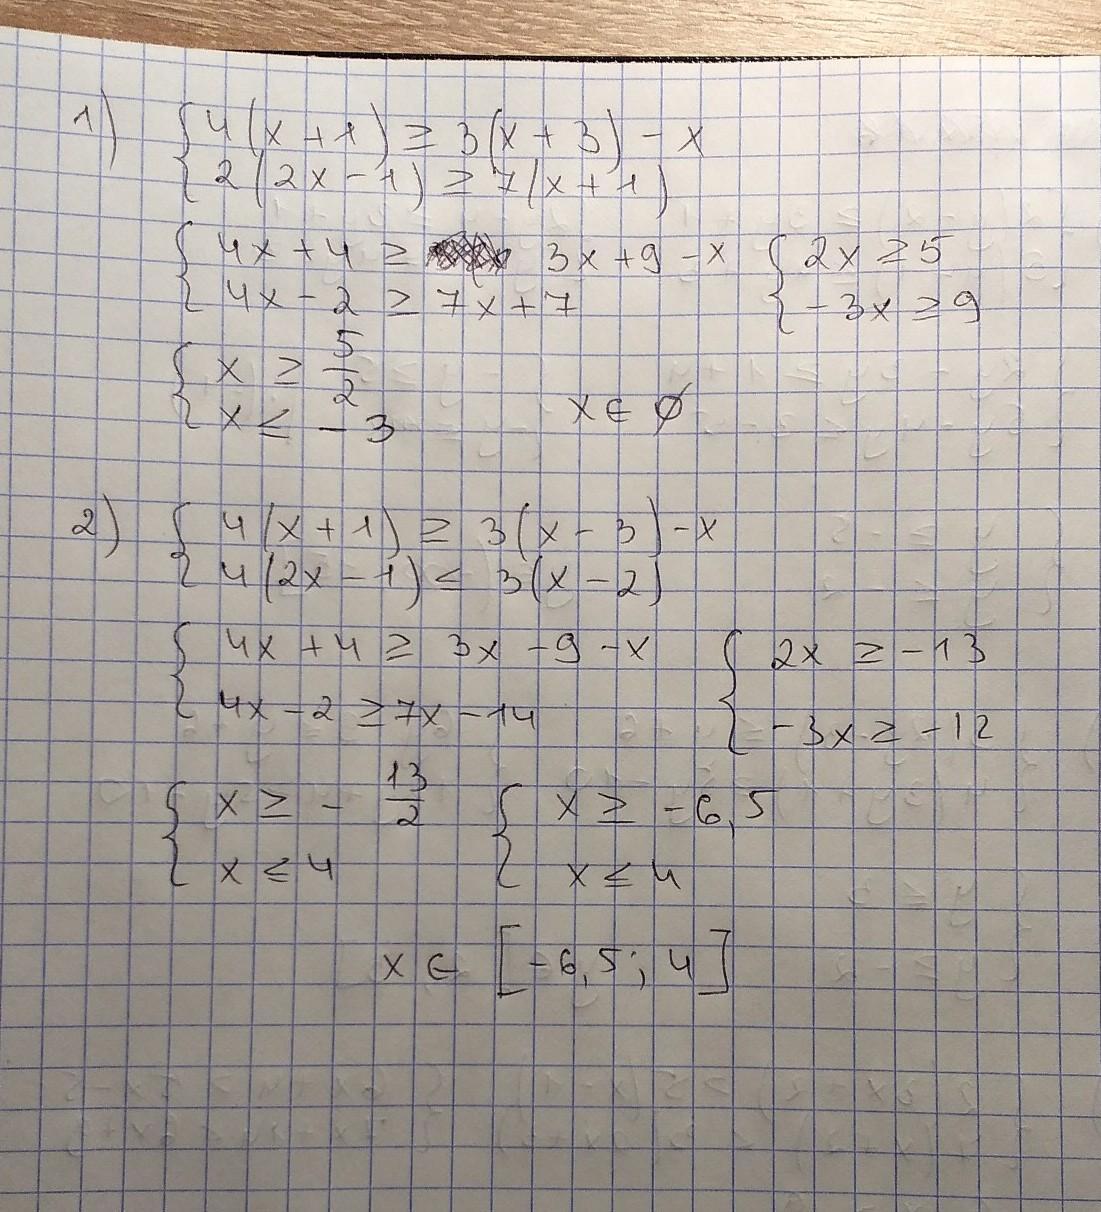 1) { 4(x+1) ≥ 3(x+3) - x
{ 2(2x-1) ≥ 7(x+1)
{ 4x+4 ≥ 3x+9-x { 2x ≥ 5
{ 4x-2 ≥ 7x+7 { -3x ≥ 9
{ x ≥ 5/2
{ x ≤ -3 x ∈ ∅
2) { 4(x+1) ≥ 3(x-3) - x
{ 4(2x-1) ≤ 3(x-2)
{ 4x+4 ≥ 3x-9-x { 2x ≥ -13
{ 4x-2 ≥ 7x-14 { -3x ≥ -12
{ x ≥ - 13/2 { x ≥ -6,5
{ x ≤ 4 { x ≤ 4
x ∈ [-6,5; 4]